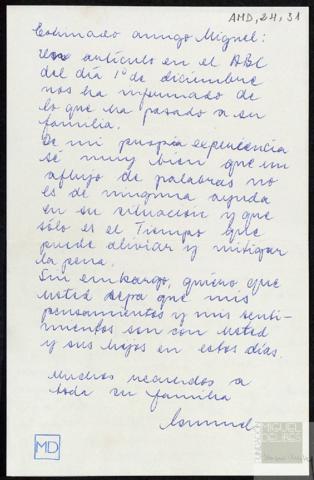 AMD, 24, 31
Estimado amigo Miguel:
Un artículo en el ABC
del día 1º de diciembre
nos ha informado de
lo que ha pasado a su
familia.
De mi propia experiencia
sé muy bien que un
aflujo de palabras no
es de ninguna ayuda
en su situacion y que
sólo es el Tiempo que
puede aliviar y mitigar
la pena.
Sin embargo, quiero que
usted sepa que mis
pensamientos y mis senti-
mientos son con Usted
y sus hijos en estos días.
Muchos recuerdos a
toda su familia
MD
FUNDACIÓN
MIGUEL
DELIBES